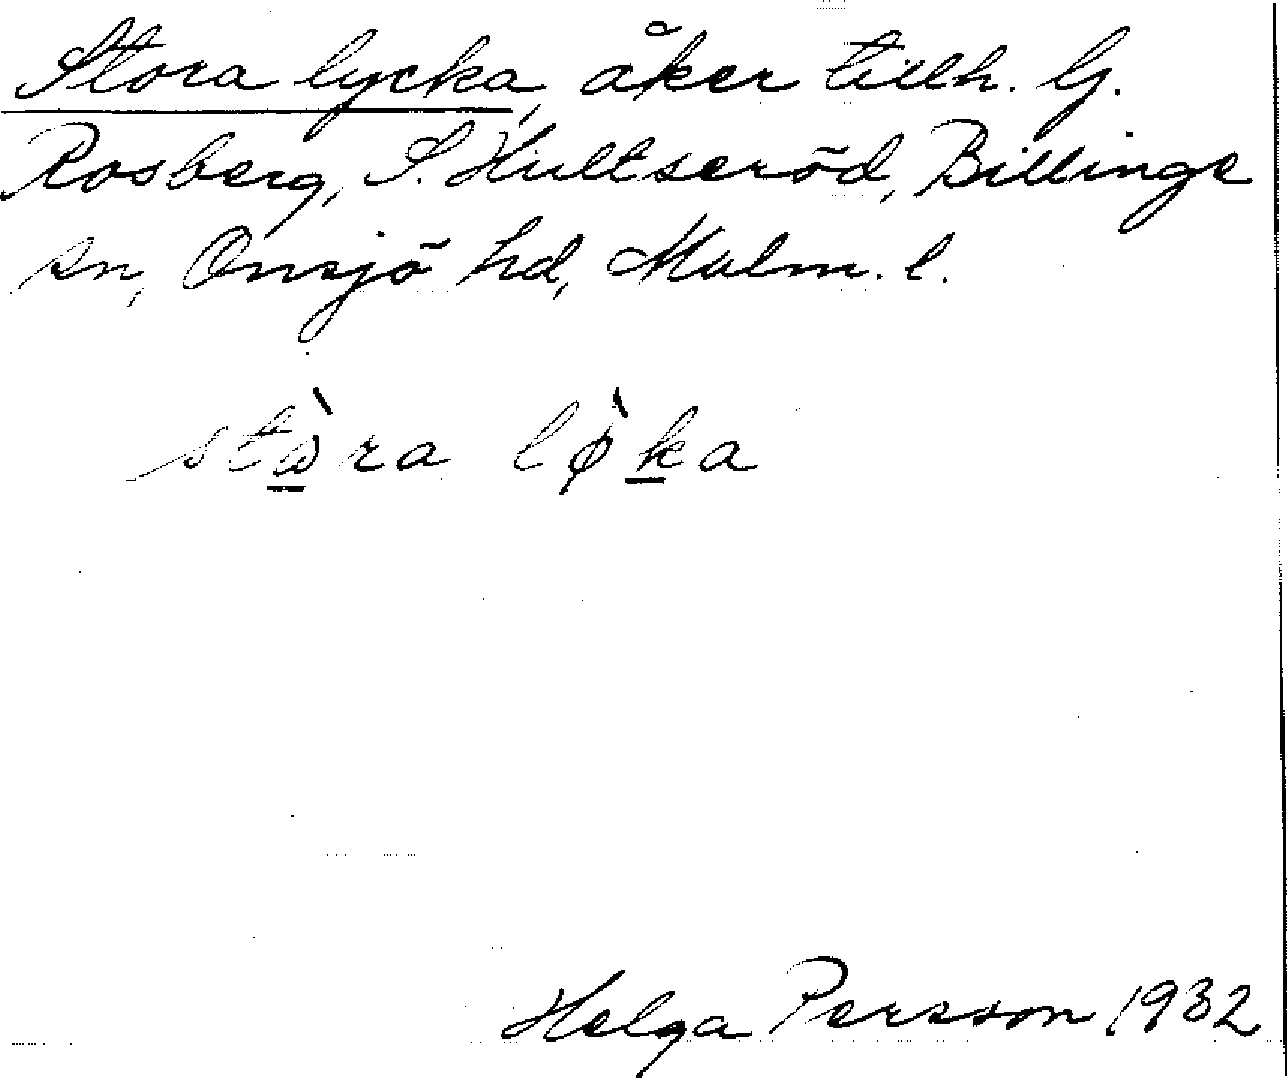 Stora lycka, åker tillh. G.
Rosberg, S. Hultseröd, Billinge
sn, Onsjö hd, Malm. l.
stὼra lø̀ka
Helga Persson 1932